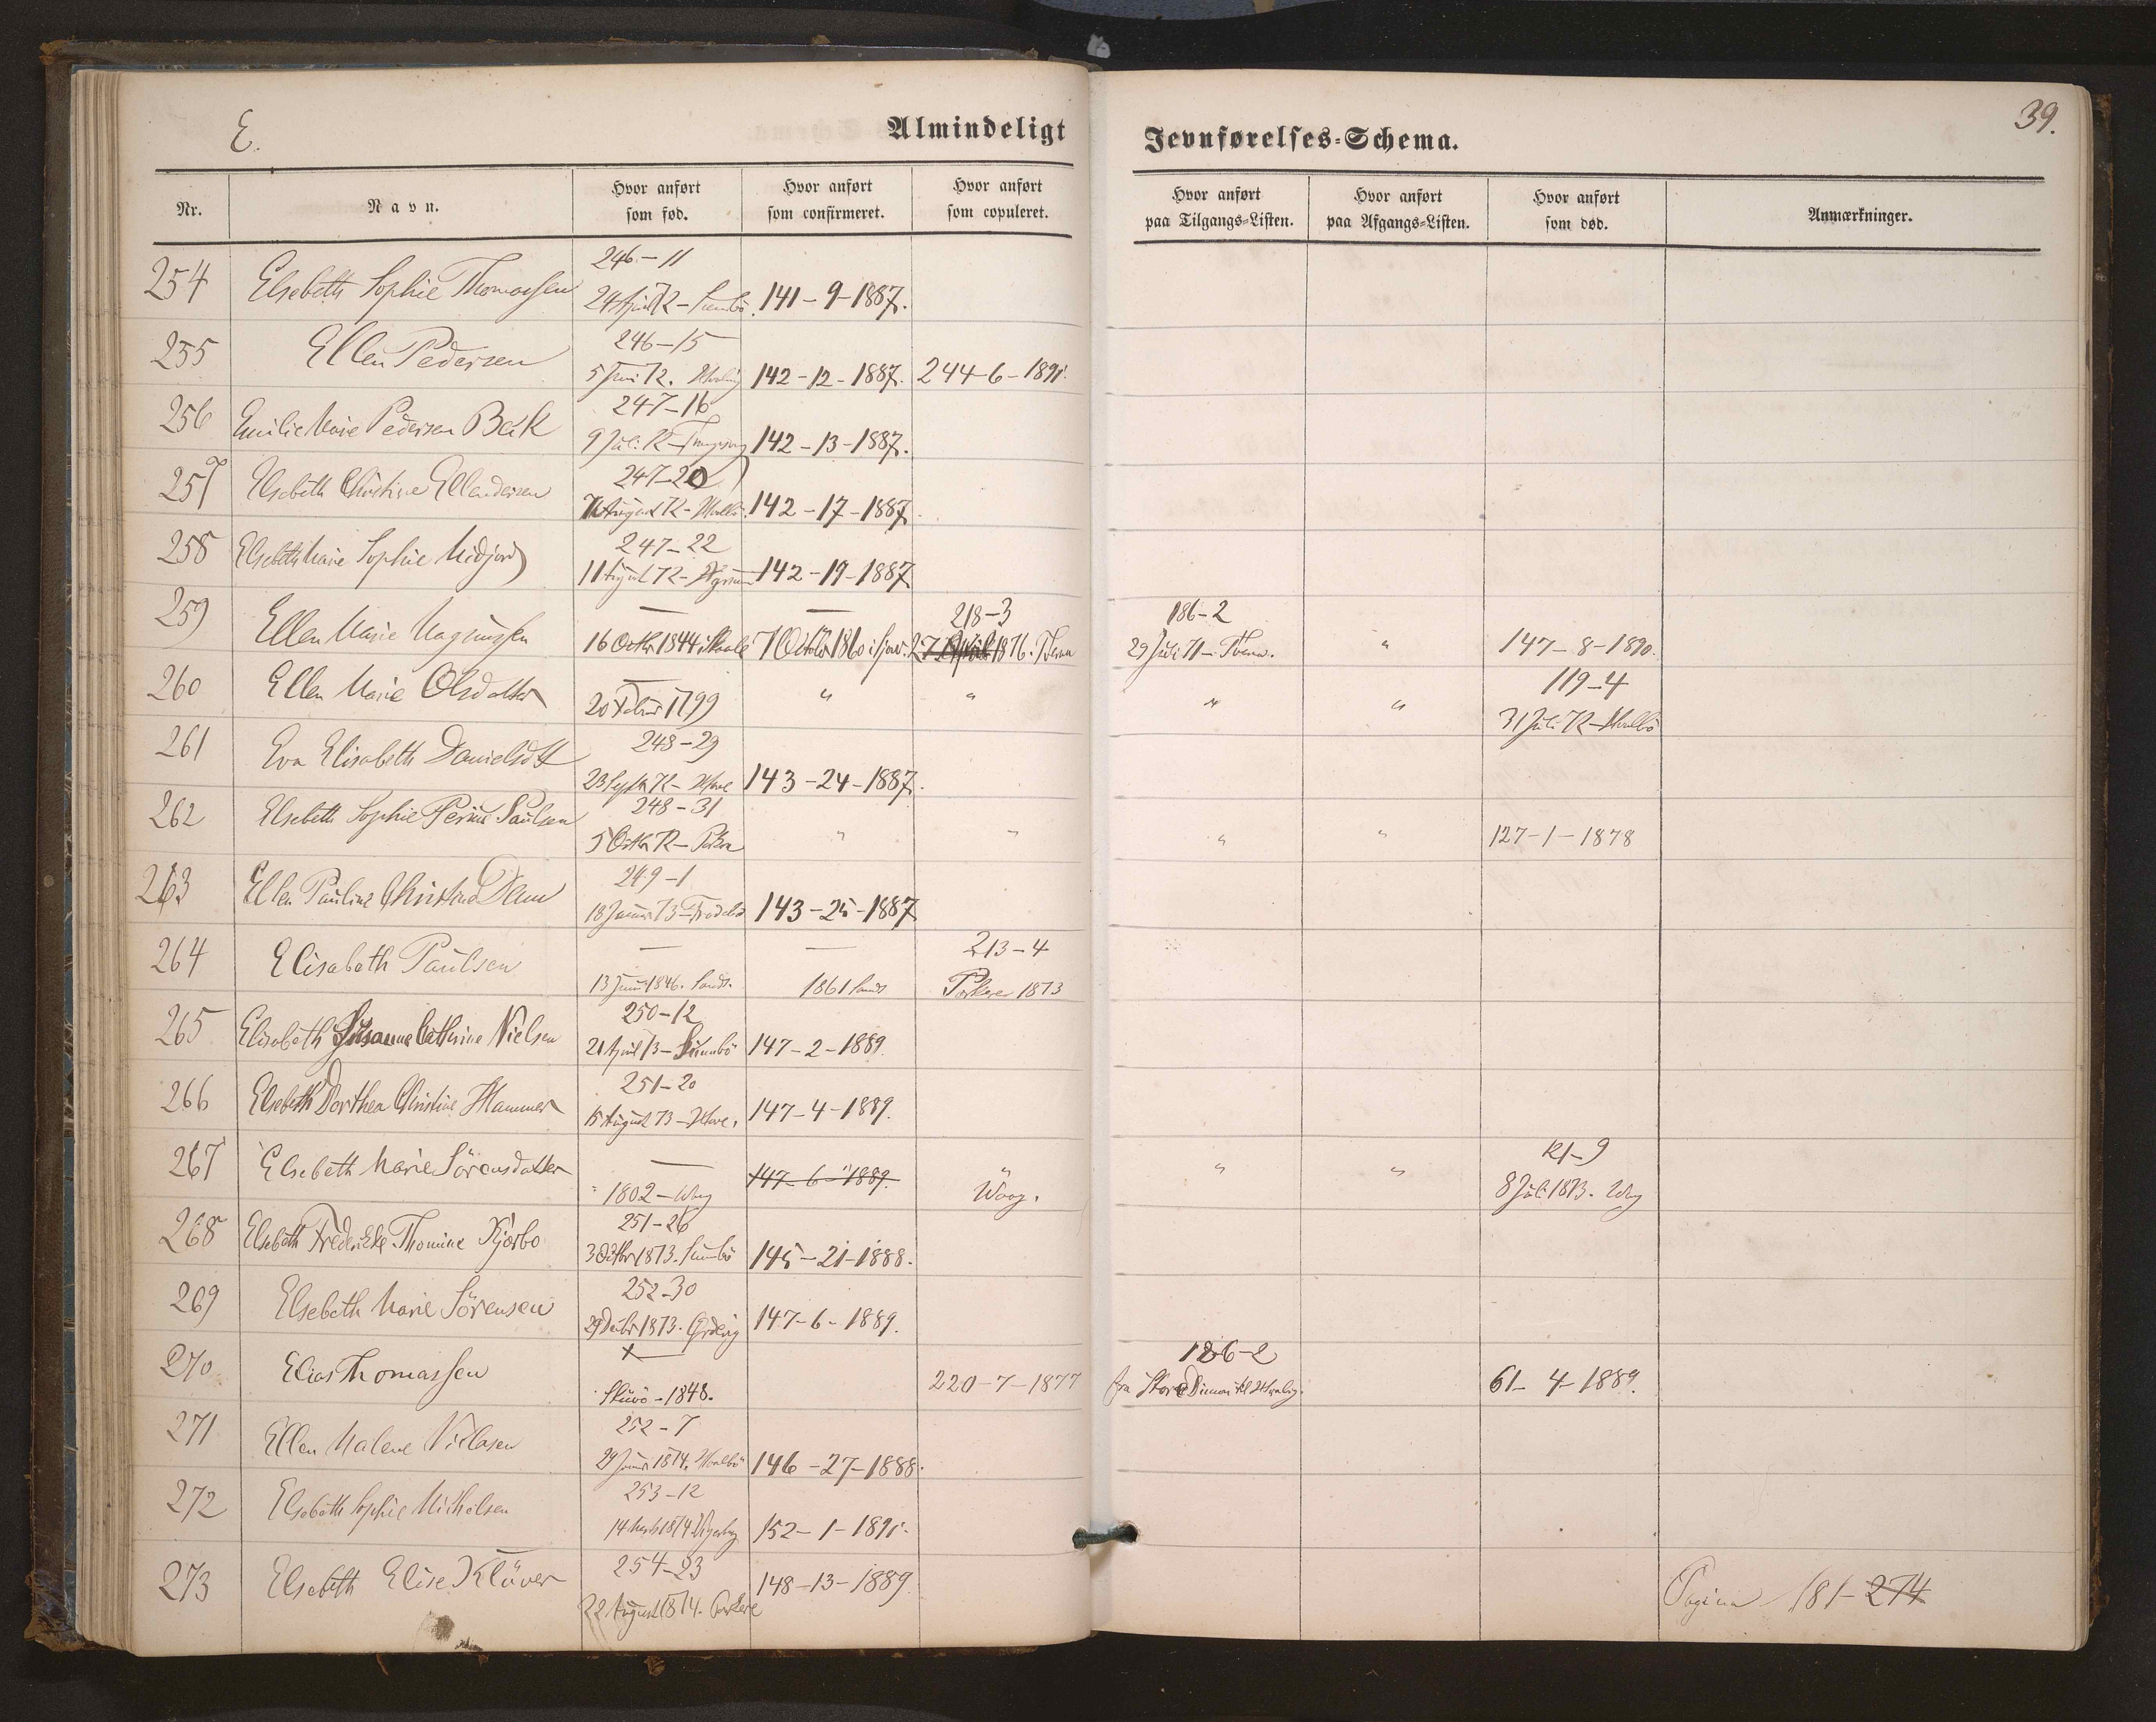 E.
Almindeligt Jevnførelses-Schema.
39.
Nr. Navn. Hvor anført som fød. Hvor anført som confirmeret. Hvor anført som copuleret. Hvor anført paa Tilgangs-Listen. Hvor anført paa Afgangs-Listen. Hvor anført som død. Anmærkninger.
246-11
254 Elsebeth Sophie Thomassen 24 April 72 - Sumbö. 141-9-1887.
246-15
255 Ellen Pedersen 5 Juni 72. 142-12-1887. 244-6-1891.
247-16
256 Emilie Marie Pedersen Bæk 9 Juli 72 - 142-13-1887.
247-20
257 Elsebeth Christine Ellendersen August 72 - Hvalbö. 142-17-1887.
247-22
258 Elsebeth Marie Sophie Midjord 11 August 72 - 142-19-1887
— — 218-3 186-2
259 Ellen Marie Magnussen 16 Octbr 1844 7 October 1860 1876. 29 Juli 71 - Tveraa. " 147-8-1890.
— 119-4
260 Ellen Marie Olsdatter 20 Febr 1799 " " " " 31 Juli 72 - Hvalbö
248-29
261 Eva Elisabeth Danielsdtt 23 Septbr 72 - 143-24-1887.
248-31
262 Elsebeth Sophie Paulsen 5 Octbr 72 - " " " " 127-1-1878
249-1
263 Ellen Pauline Christine Dam 18 Januar 73 - 143-25-1887
— — 213-4
264 Elisabeth Paulsen 13 1846. 1861 Porkere 1873
250-12
265 Elisabeth Susanne Cathrine Nielsen 21 April 73 - Sumbö 147-2-1889.
251-20
266 Elsebeth Dorthea Christine Hammer 15 August 73 - 147-4-1889.
— 121-9
267 Elsebeth Marie Sörensdatter 1802 - Waag 147-6-1889. " Waag. " " 8 Juli 1873. Waag
251-26
268 Elsebeth Fredericke Thomine Kjærbo 3 Octbr 1873. Sumbö 145-21-1888.
252-30
269 Elsebeth Marie Sörensen 29 Decbr 1873. 147-6-1889.
186-2
270 Elias Thomassen Skuö - 1848. 220-7-1877 fra Store Dimon til 61-4-1889.
252-7
271 Ellen Malene Niclasen 29 Januar 1874. Hvalbö 146-27-1888.
253-12
272 Elsebeth Sophie Michelsen 14 Marts 1874 152-1-1891.
254-23
273 Elsebeth Elise Klüver 22 August 1874. Porkere 148-13-1889.
Pagina 181-274